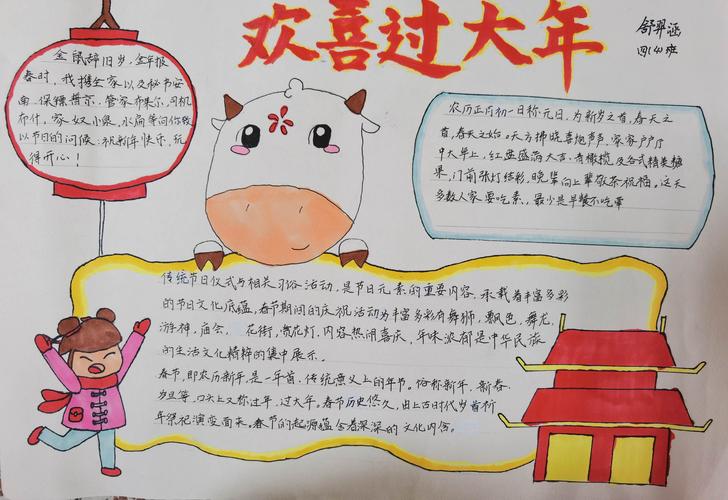 欢喜过大年
舒羿涵
四(4)班
金鼠辞旧岁,金牛报
春时,我携全家以及秘书安
南、保镖普尔、管家布莱尔、司机
乔什、家奴小泉、水扁等向你致
以节日的问候:祝新年快乐,玩
得开心!
农历正月初一日称元日,为新岁之首,春天之
首,春天之始。天方拂晓喜炮声声,家家户户厅
中大早上,红盘盛满大吉、青橄榄及各式精美糖
果,门前张灯结彩,晚辈向上辈敬茶祝福。这天
多数人家要吃素,最少是早餐不吃荤
传统节日仪式与相关习俗活动,是节日元素的重要内容,承载着丰富多彩
的节日文化底蕴。春节期间的庆祝活动为丰富多彩有舞狮,飘色,舞龙,
游神,庙会、花街,赏花灯,内容热闹喜庆,年味浓郁是中华民族
的生活文化精粹的集中展示。
春节,即农历新年,是一年首,传统意义上的年节。俗称新年、新春、
岁旦等,口头上又称过年、过大年。春节历史悠久,由上古时代岁首祈
年祭祀演变而来。春节的起源蕴含着深深的文化内含。